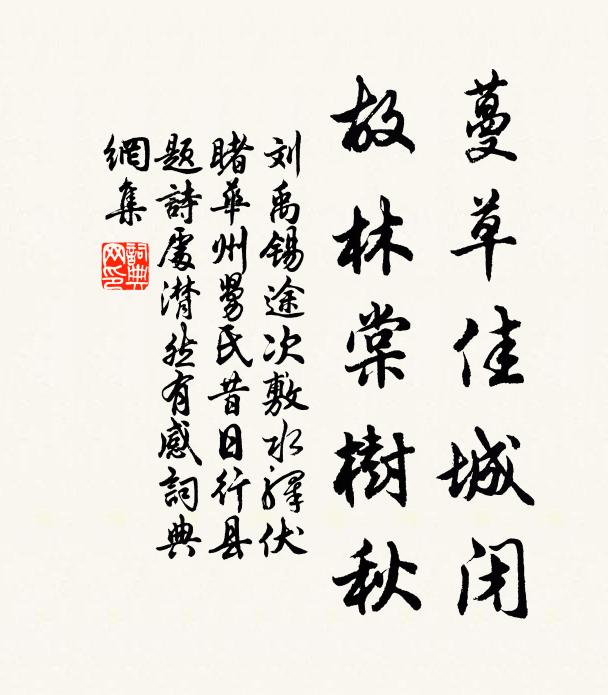 蔓草佳城闭
故林棠樹秋
刘禹锡途次敷水驿伏
睹華州舅氏昔日行县
题詩處潸然有感詞典
網集
詞典网印